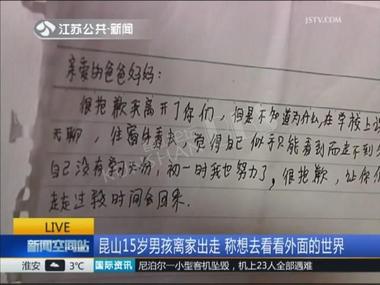 江苏公共·新闻
JSTV.COM
亲爱的爸爸妈妈:
很抱歉我离开了你们,但是不知道为什么,在学校上课
无聊,往窗外看去,觉得自己似乎只能看到而走不到
自己没有 初一时我也努力了,很抱歉,让你们
走走过 段时间会回来.
LIVE
新闻空间站
昆山15岁男孩离家出走 称想去看看外面的世界
淮安 3℃ 国际资讯 尼泊尔一小型客机坠毁,机上23人全部遇难